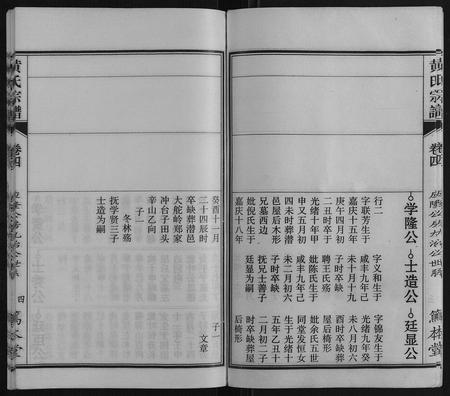 黄氏宗譜
卷四
篤本堂
学隆公
士造公
廷显公
行二
字联芳生于
嘉庆十五年
庚午四月初
二丑时卒于
光绪十年甲
申又五月初
四未时葬潜
邑屋后木形
兄墓西边
妣倪氏生于
嘉庆十八年
字义和生于
咸丰九年己
未十月十九
子时卒缺
聘王氏殇
妣陈氏生于
咸丰九年己
未二月初六
子时卒缺
抚兄士善子
廷显为嗣
字锦友生于
光绪九年癸
未八月初六
酉时卒缺葬
屋后椅形
妣余氏五世
同堂发恒女
生于光绪十
五年乙丑十
二月初二子
时卒缺葬屋
后椅形
癸酉十一月
二十四辰时
卒缺葬潜邑
大舵岭郑家
冲台子田头
辛山乙向
子一
冬林殇
抚学贤三子
士造为嗣
子一
文章
黄氏宗譜
卷四
四
篤本堂